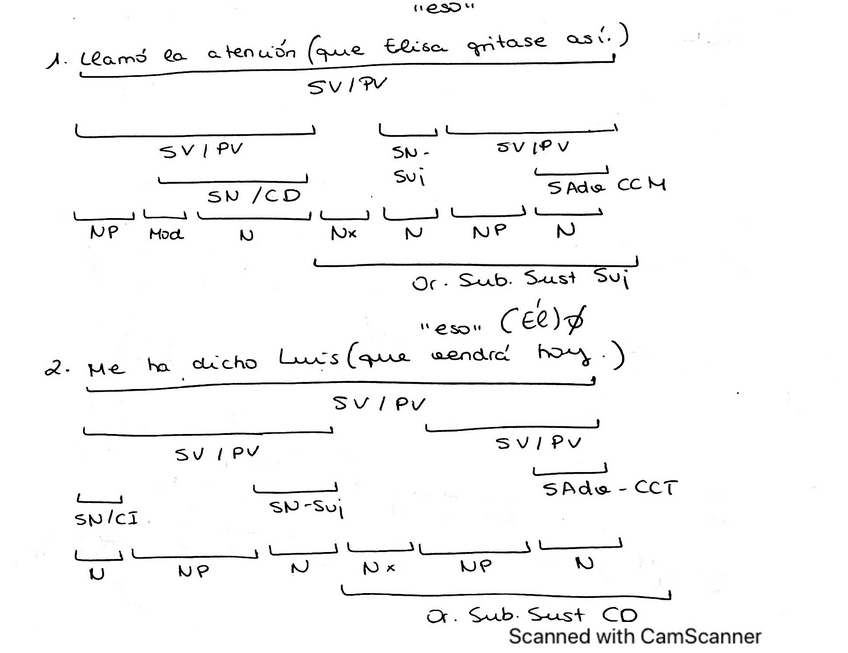 "eso"
1. Llamó la atención (que Elisa gritase así.)
SV/PV
SV/PV SN-Suj SV/PV
SN/CD SAdv CCM
NP Mod N Nx N NP N
Or. Sub. Sust Suj
"eso" (Él) Ø
2. Me ha dicho Luis (que vendrá hoy.)
SV/PV
SV/PV SV/PV
SN/CI SN-Suj SAdv-CCT
N NP N Nx NP N
Or. Sub. Sust CD
Scanned with CamScanner